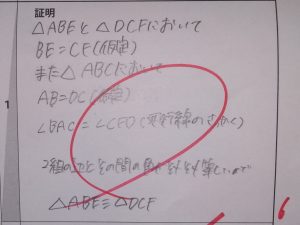 証明
△ABEと△DCFにおいて
BE=CF(仮定)
また△ABCにおいて
AB=DC(仮定)
∠BAC=∠CFD(平行線のさっかく)
2組の辺とその間の角がそれぞれ等しいので
△ABE≡△DCF
1
6